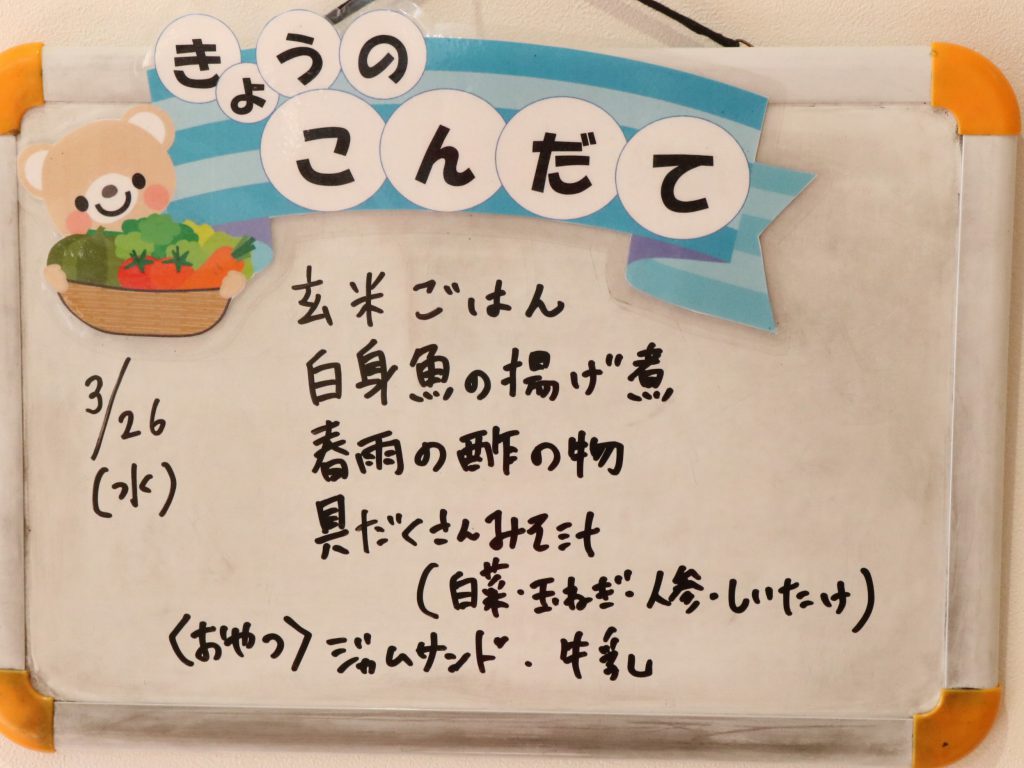 きょうの
こんだて
3/26
(水)
玄米ごはん
白身魚の揚げ煮
春雨の酢の物
具だくさんみそ汁
(白菜・玉ねぎ・人参・しいたけ)
〈おやつ〉ジャムサンド・牛乳